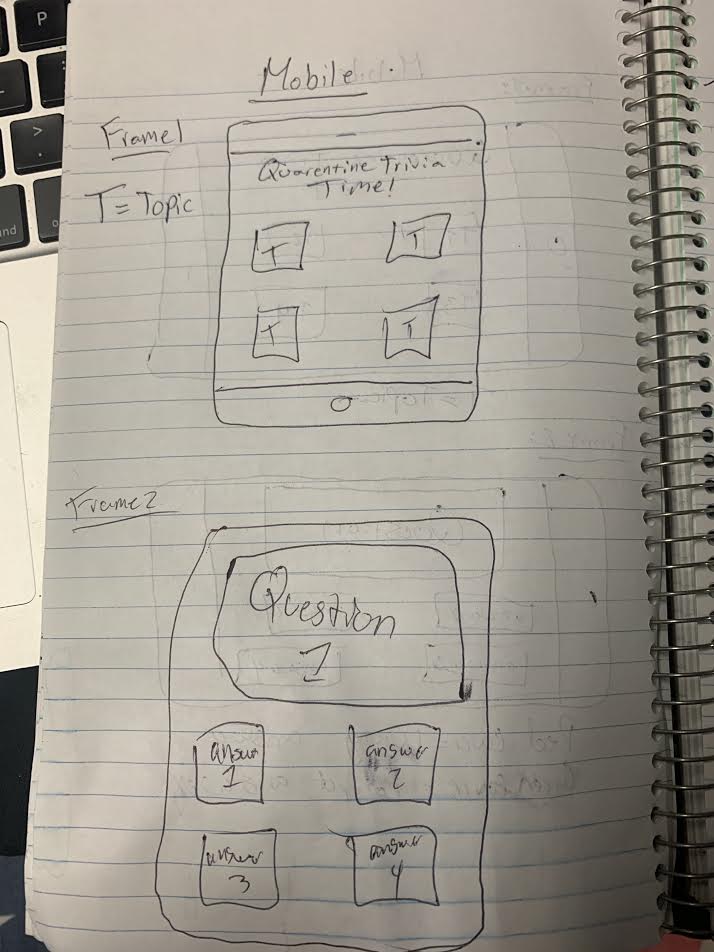 Mobile
Frame1
T = Topic
Quarentine Trivia
Time!
T
T
T
T
Frame2
Question
1
answer
1
answer
2
answer
3
answer
4